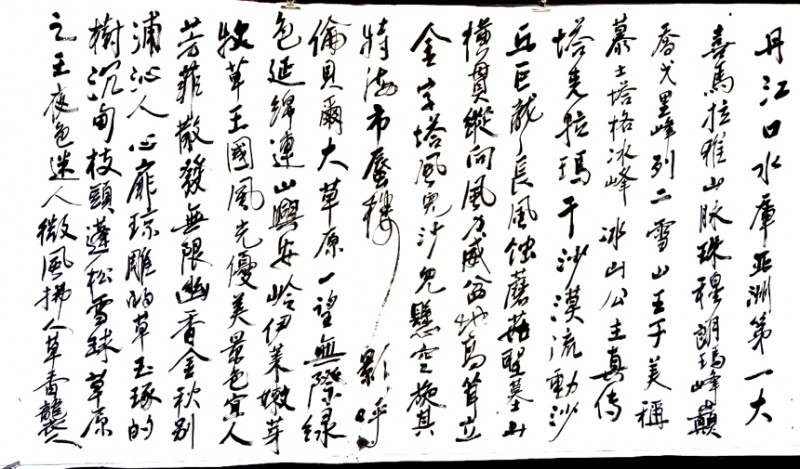 丹江口水庫亞洲第一大
喜馬拉雅山脈珠穆朗瑪峰巔
喬戈里峰列二雪山王子美稱
慕士塔格冰峰冰山公主真傳
塔克拉瑪干沙漠流動沙
丘巨龍長風蝕蘑菇聖墓山
橫貫縱向風力威盆地高聳立
金字塔風兒沙兒懸空施其
特海市蜃樓影呼
倫貝爾大草原一望無際綠
色延綿連山興安嶺伊萊嫩芽
牧草王國風光優美景色宜人
芳菲散發無限幽香金秋別
浦沁人心扉琼雕的草玉琢的
樹沉甸枝頭蓬松雪球草原
之王夜色迷人微風拂人草香襲人